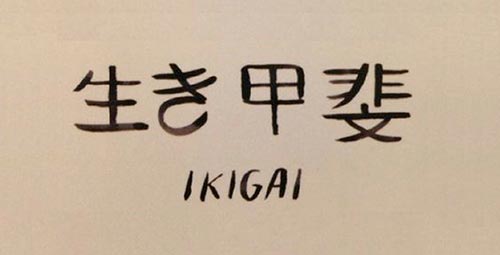 生き甲斐
IKIGAI